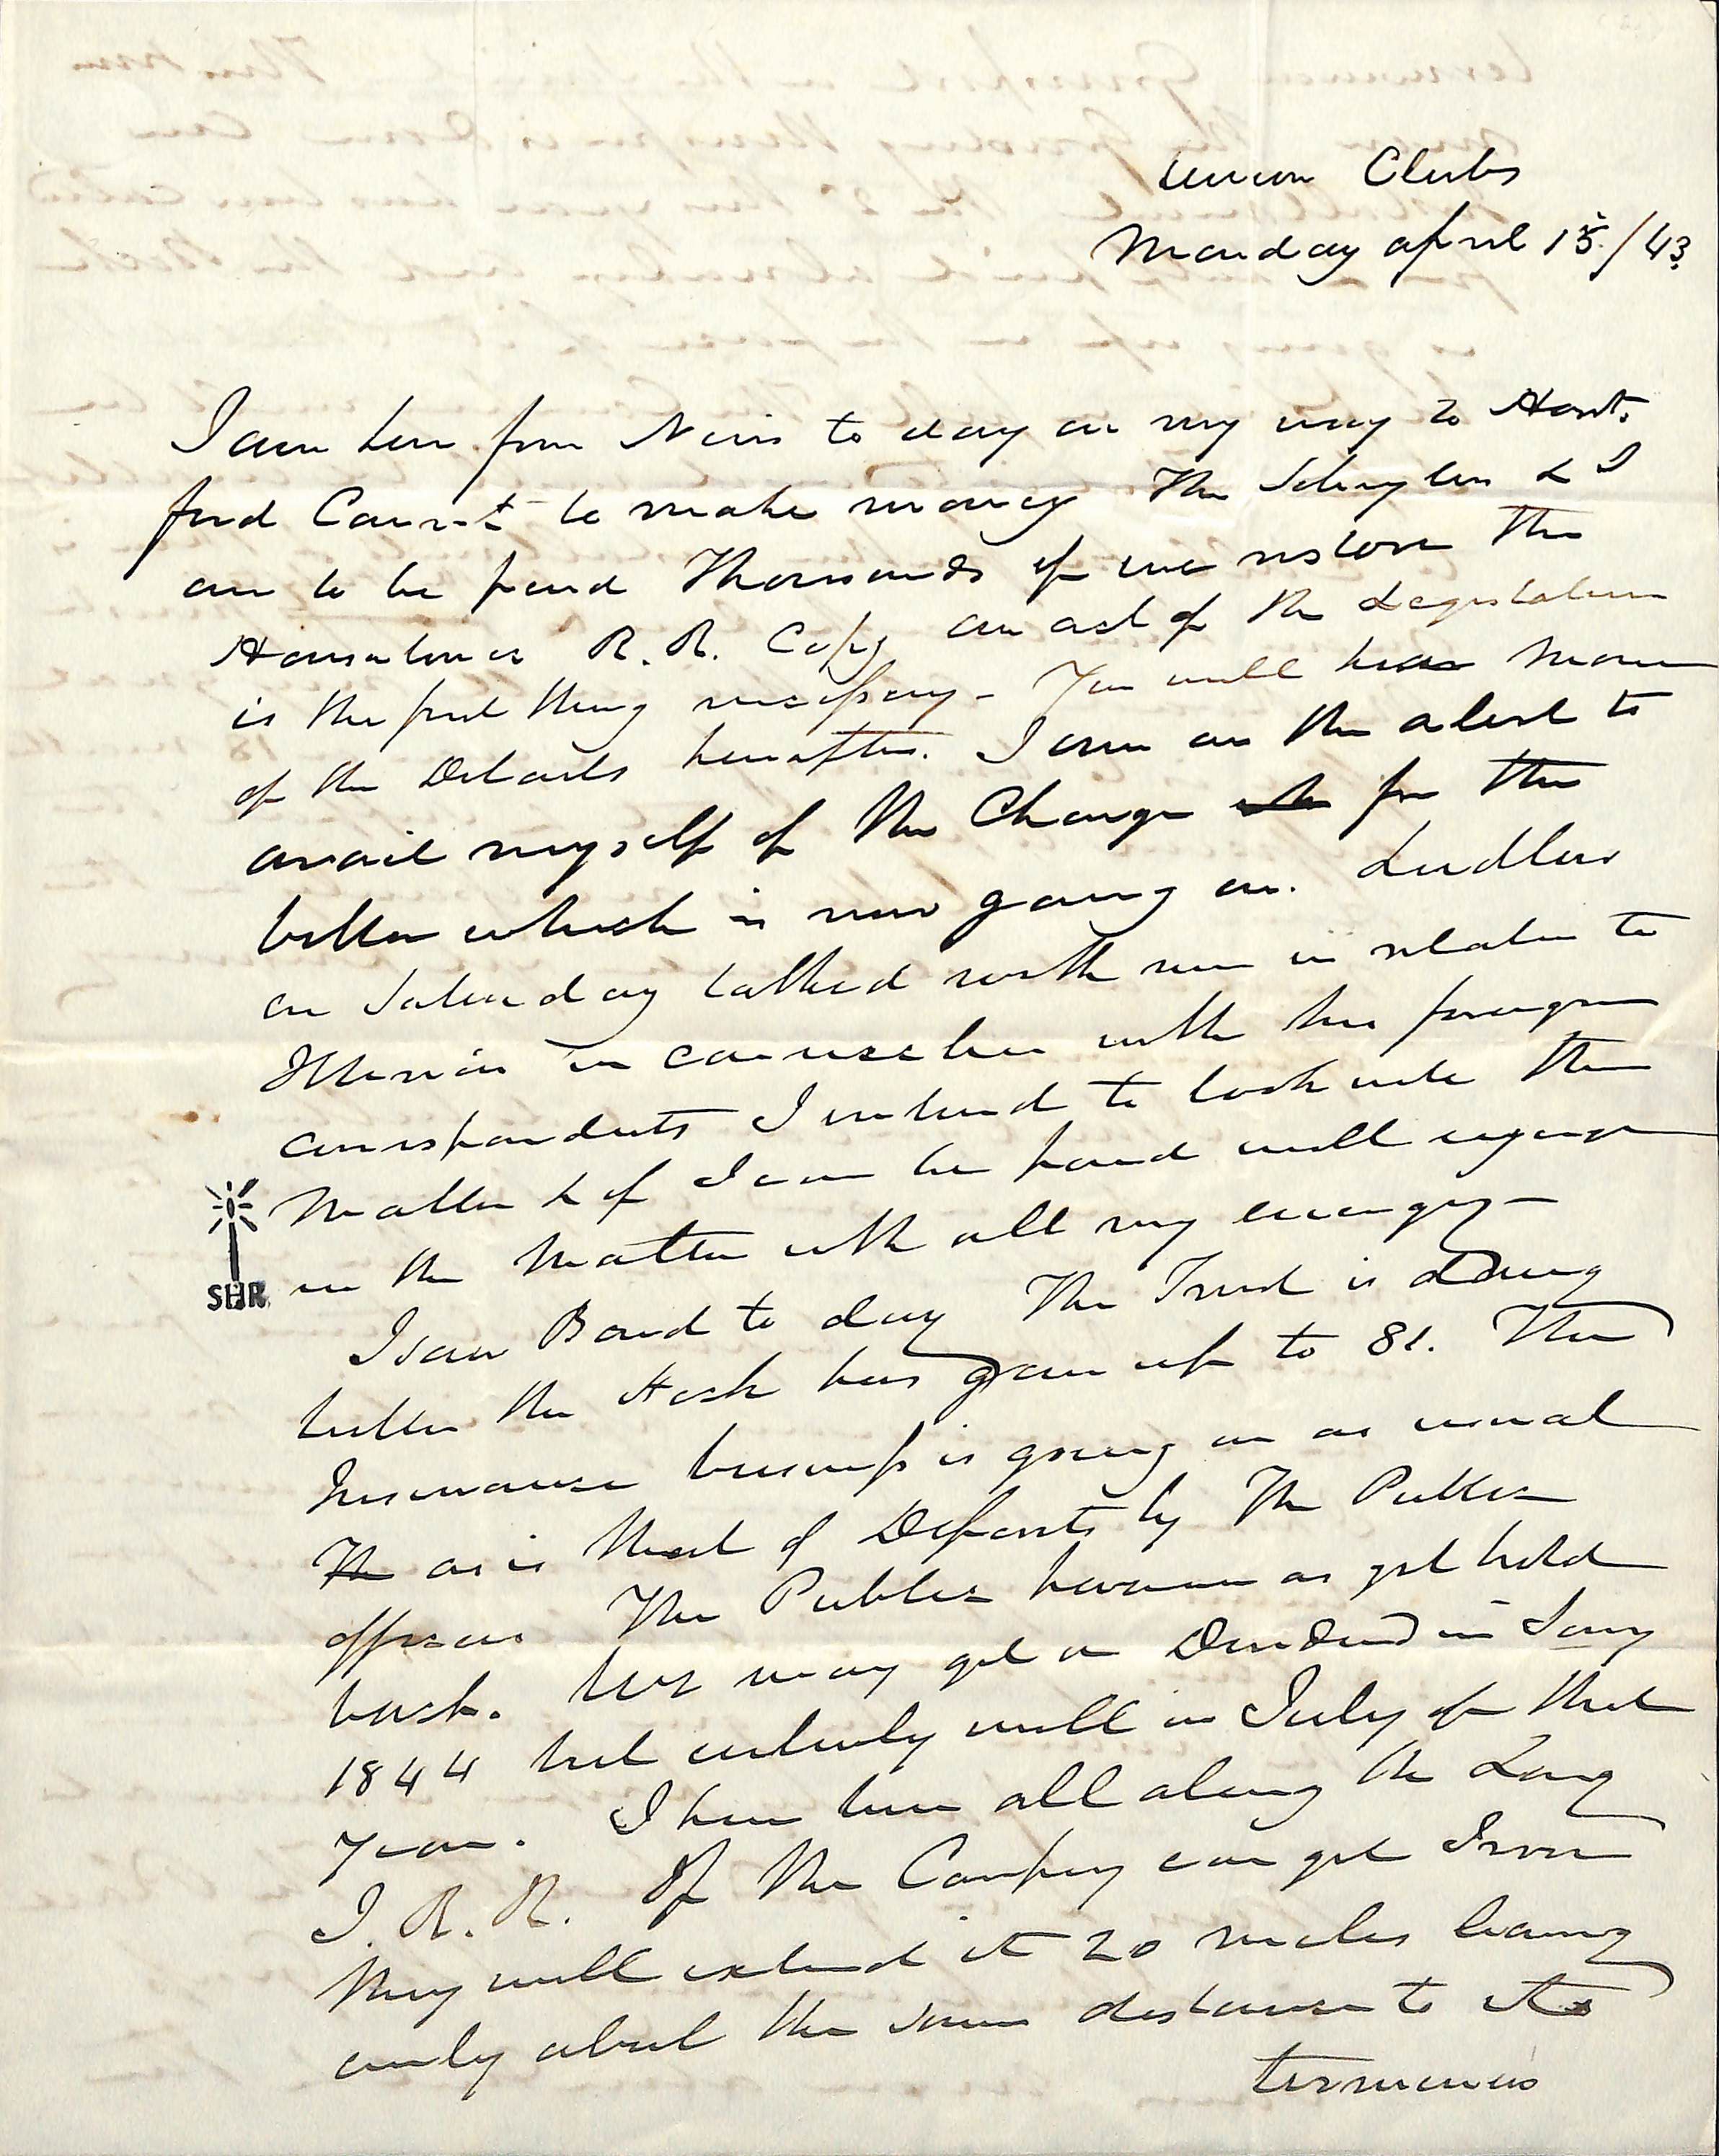 Union Club
Monday April 15/43
I am here from Nevis to day on my way to Hart.
ford Connt to make money The Schuylers & I
are to be paid Thousands if we restore the
Housatonic R.R. Copy an act of the Legislature
is the first thing necessary - You will hear more
of the Details hereafter. I am on the alert to
avail myself of the Change for the
better which is now going on. Ludlow
on Saturday talked with me in relation to
Illinois in connection with his foreign
correspondents I intend to look into the
matter & if I can be paid will engage
in the matter with all my energy -
SHR
I saw Bard to day The Trust is doing
better the stock has gone up to 81. The
Insurance business is going on as usual
as is that of Deposits by The Public
officers The Public have as yet held
back. We may get a Dividend in Jany
1844 but certainly will in July of that
year. I have been all along the Long
I. R. R. If the Company can get Iron
they will extend it 20 miles leaving
only about the same distance to its
terminus